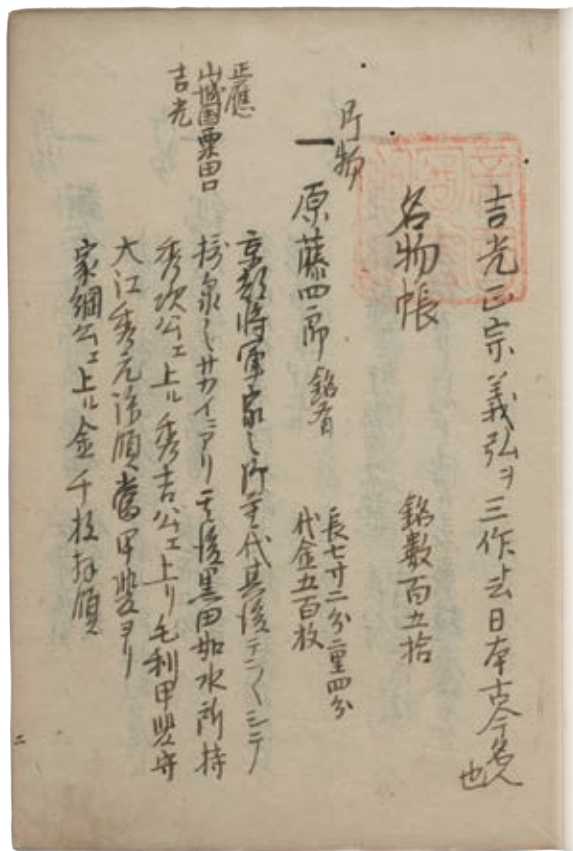 吉光正宗義弘ヲ三作ト云日本古今名人也
名物帳 銘数百五拾
御物
一 原藤四郎 銘有 長七寸二分二重四分
代金五百枚
正應
山城国粟田口
吉光
京都将軍家之御重代其後
泉之サカイニアリ其後黒田如水所持
秀次公エ上ル秀吉公エ上リ毛利甲斐守
大江秀元拝領當甲斐ヨリ
家綱公エ上ル金千枚拝領
二